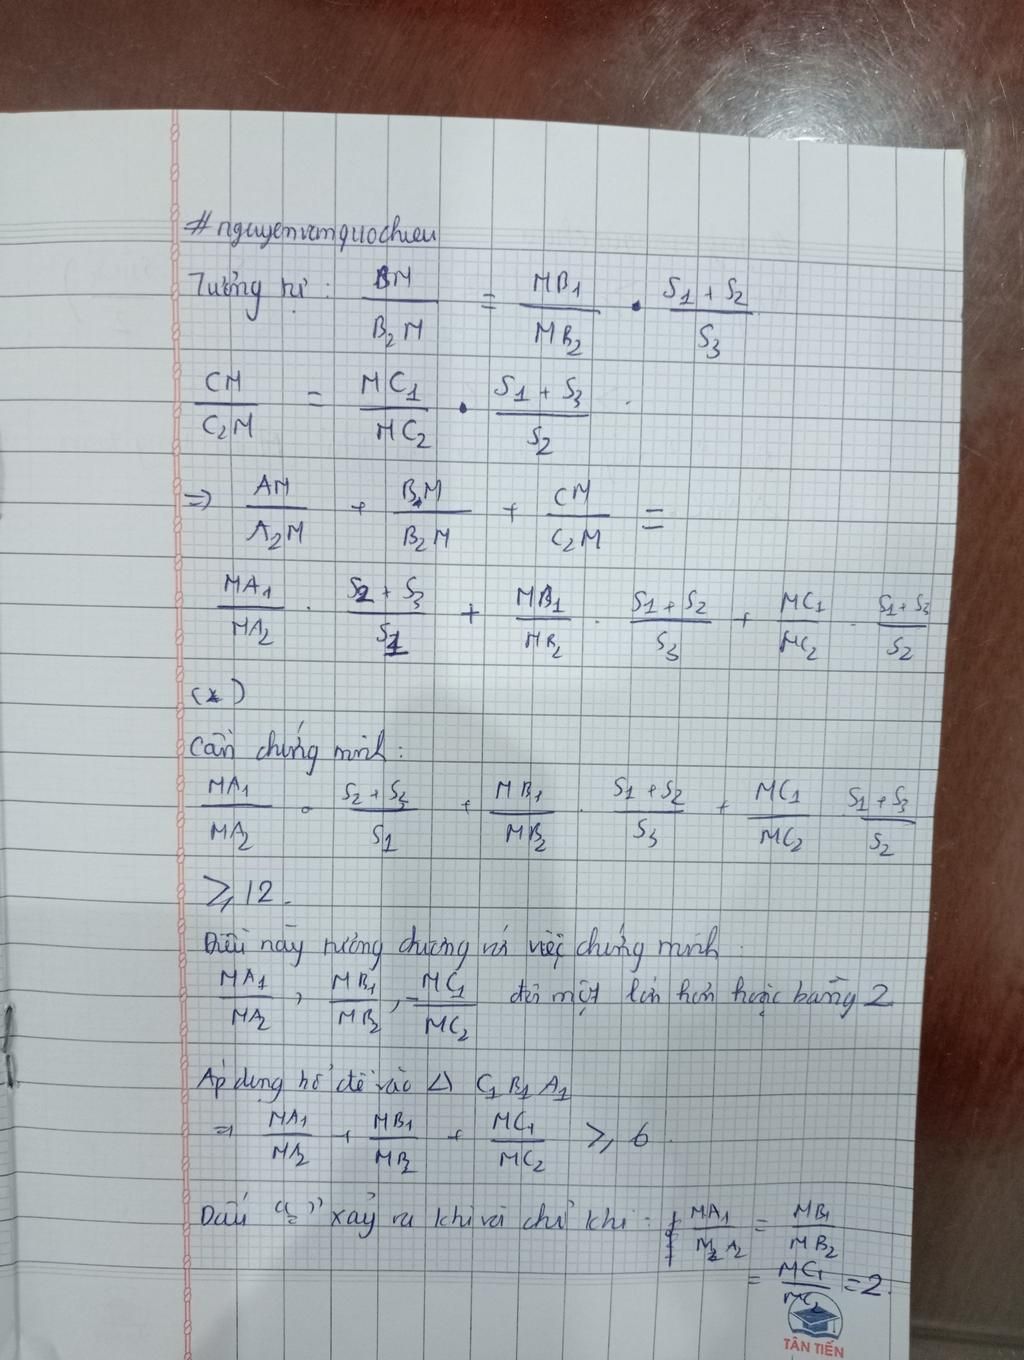 #nguyenvanquochieu
Tương tự: BM/B₂M = MB₁/MB₂ · (S₁ + S₂)/S₃
CM/C₂M = MC₁/MC₂ · (S₁ + S₃)/S₂
⇒ AM/A₂M + BM/B₂M + CM/C₂M =
MA₁/MA₂ · (S₂ + S₃)/S₁ + MB₁/MB₂ · (S₁ + S₂)/S₃ + MC₁/MC₂ · (S₁ + S₃)/S₂
(*)
Cần chứng minh:
MA₁/MA₂ · (S₂ + S₃)/S₁ + MB₁/MB₂ · (S₁ + S₂)/S₃ + MC₁/MC₂ · (S₁ + S₃)/S₂
≥ 12.
Điều này tương đương với việc chứng minh
MA₁/MA₂, MB₁/MB₂, MC₁/MC₂ đôi một lớn hơn hoặc bằng 2
Áp dụng bổ đề vào Δ C₁B₁A₁
⇒ MA₁/MA₂ + MB₁/MB₂ + MC₁/MC₂ ≥ 6.
Dấu "=" xảy ra khi và chỉ khi: MA₁/M₂A₂ = MB₁/MB₂
= MC₁/MC₂ = 2.
TÂN TIẾN